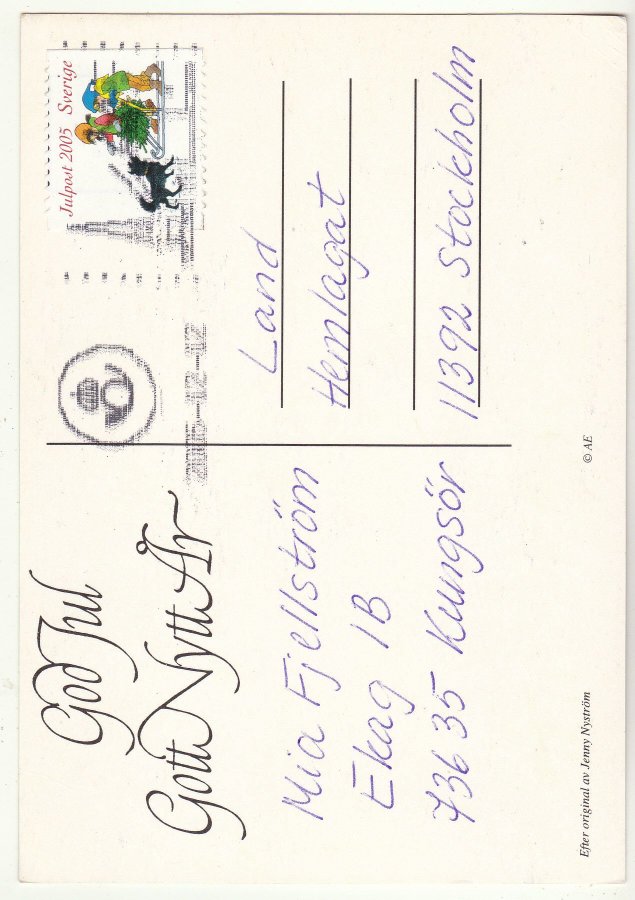 God Jul
Gott Nytt År
Mia Fjellström
Ekag 1B
73635 Kungsör
Julpost 2005 Sverige
Land
Hemlagat
11392 Stockholm
Efter original av Jenny Nyström
© AE